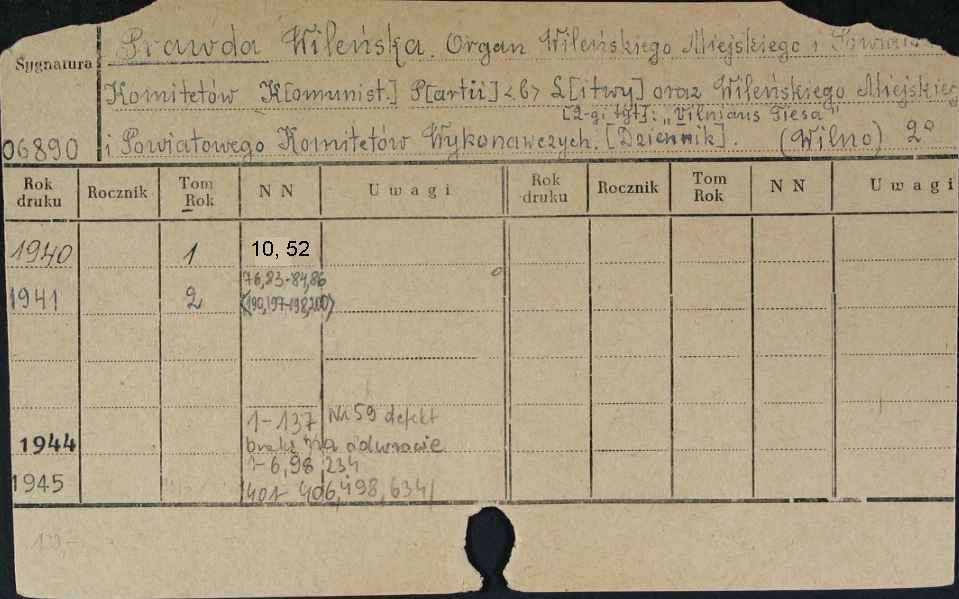 Prawda Wileńska. Organ Wileńskiego Miejskiego i
Sygnatura
Komitetów K[omunist.] P[artii] <b> L[itwy] oraz Wileńskiego Miejskieg
[2-gi tyt]: "Vilniaus Tiesa"
06890 i Powiatowego Komitetów Wykonawczych. [Dziennik]. (Wilno) 2°
Rok druku Rocznik Tom Rok N N Uwagi Rok druku Rocznik Tom Rok N N Uwagi
1940 1 10, 52
76,83-84,86
1941 2 (190,197-198,200)
1-137 Nr 59 defekt
1944 braki na odwrocie
1-6,98,234
1945 401-406,498,634/